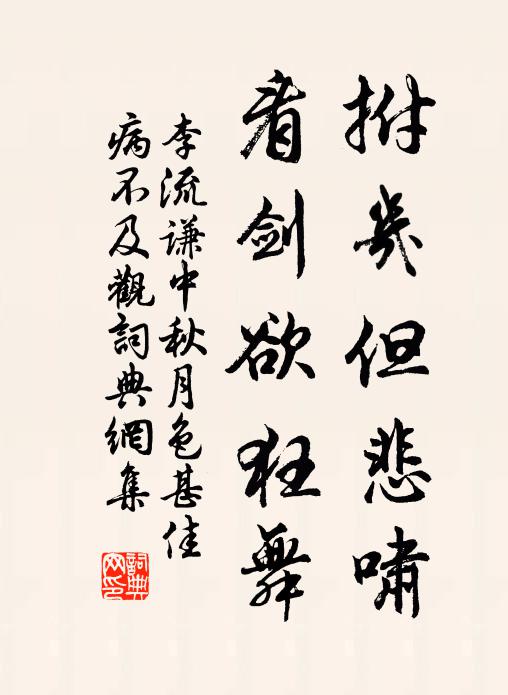 拊几但悲嘯
看剑欲狂舞
李流谦中秋月色甚佳
病不及觀詞典網集
詞典
网印